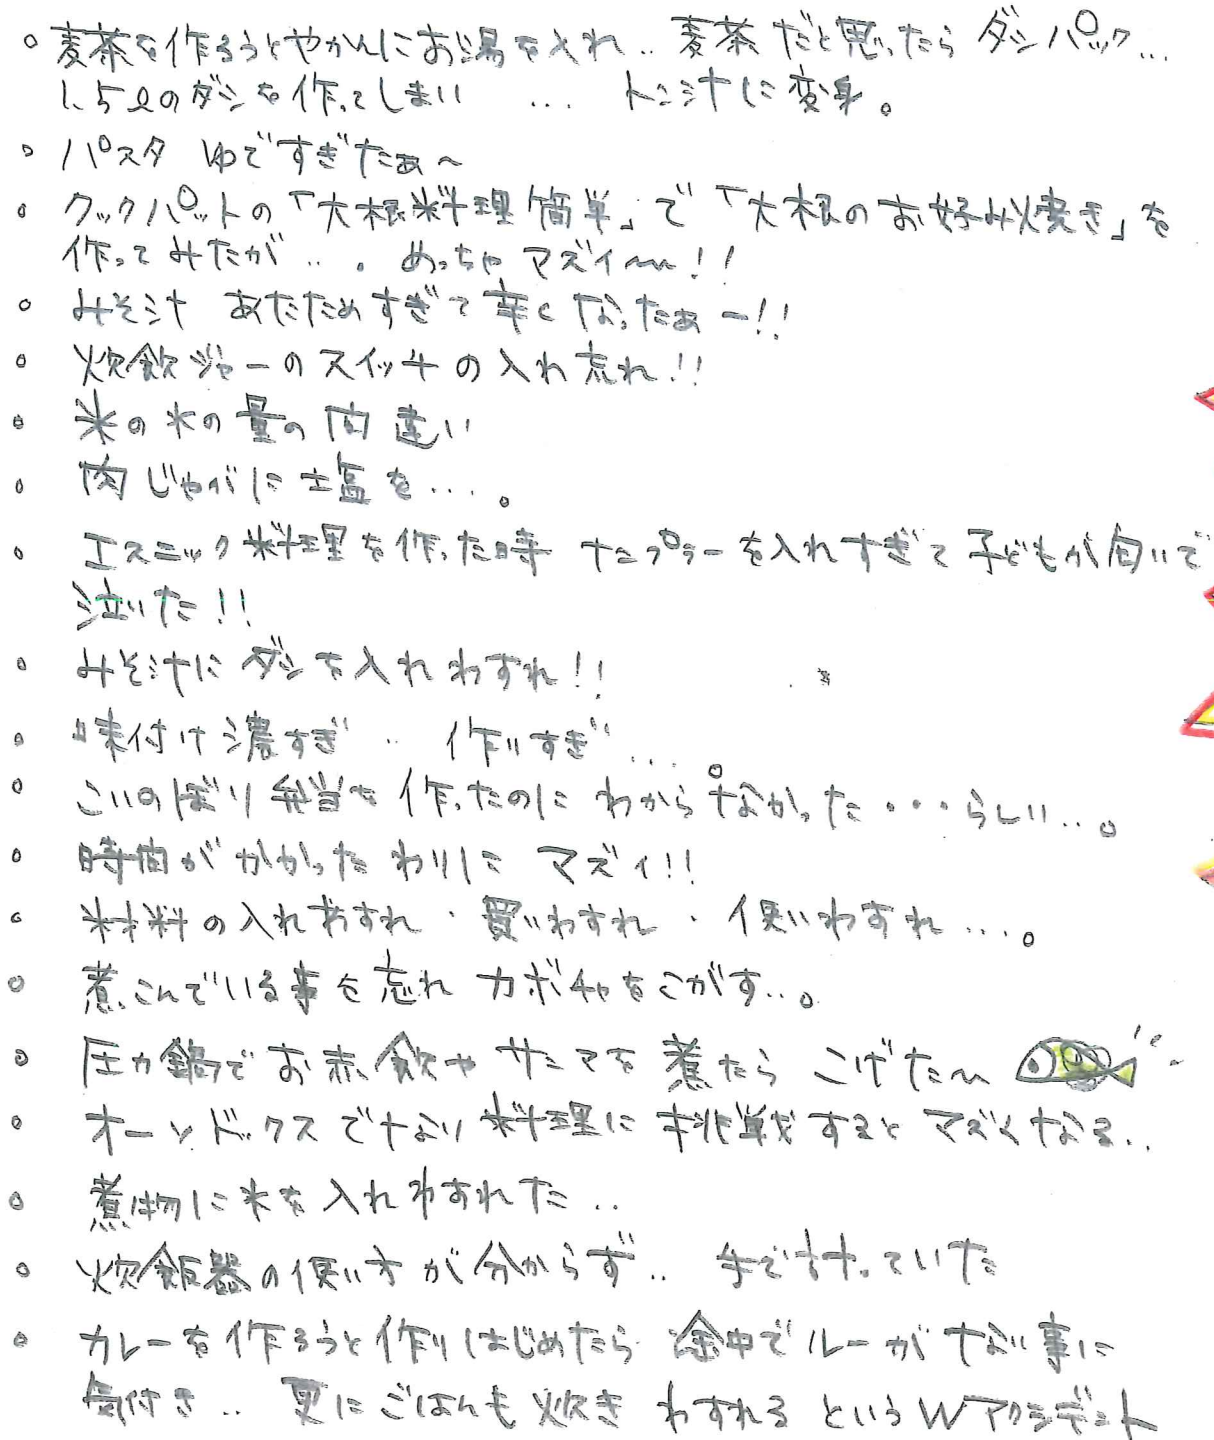 。麦茶を作ろうとやかんにお湯を入れ‥麦茶だと思ったらダシパック…
1.5ℓのダシを作ってしまい … トン汁に変身。
。パスタ ゆですぎたぁ～
。クックパットの「大根料理簡単」で「大根のお好み焼き」を
作ってみたが‥. めっちゃマズイ〜!!
。みそ汁 あたためすぎて辛くなったぁー!!
。炊飯ジャーのスイッチの入れ忘れ!!
。米の水の量の間違い
。肉じゃがに塩を…。
。エスニック料理を作った時 ナンプラーを入れすぎて子どもが匂いで
泣いた!!
。みそ汁にダシを入れわすれ!!
。味付け濃すぎ‥ 作りすぎ…
。こいのぼり弁当を作ったのにわからなかった・・・らしい‥。
。時間がかかったわりにマズイ!!
。材料の入れわすれ・買いわすれ・使いわすれ…。
。煮こんでいる事を忘れカボチャをこがす‥。
。圧力鍋でお赤飯やサンマを煮たらこげた〜
。オーソドックスでない料理に挑戦するとマズくなる‥
。煮物に水を入れわすれた‥
。炊飯器の使い方が分からず‥ 手で計っていた
。カレーを作ろうと作りはじめたら途中でルーがない事に
気付き‥ 更にごはんも炊きわすれるというWアクシデント